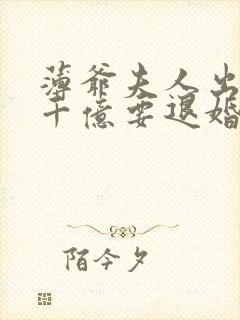 薄爷夫人出
十亿要退婚
陌今夕